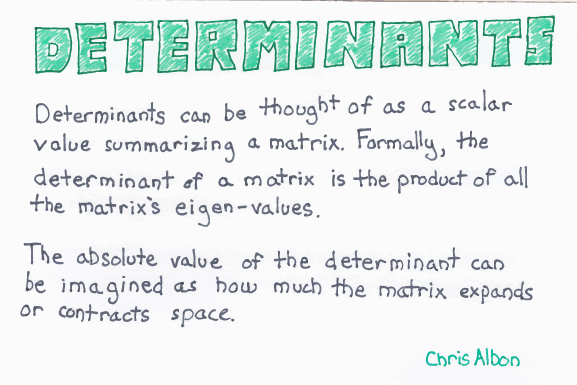 DETERMINANTS
Determinants can be thought of as a scalar
value summarizing a matrix. Formally, the
determinant of a matrix is the product of all
the matrix's eigen-values.
The absolute value of the determinant can
be imagined as how much the matrix expands
or contracts space.
Chris Albon